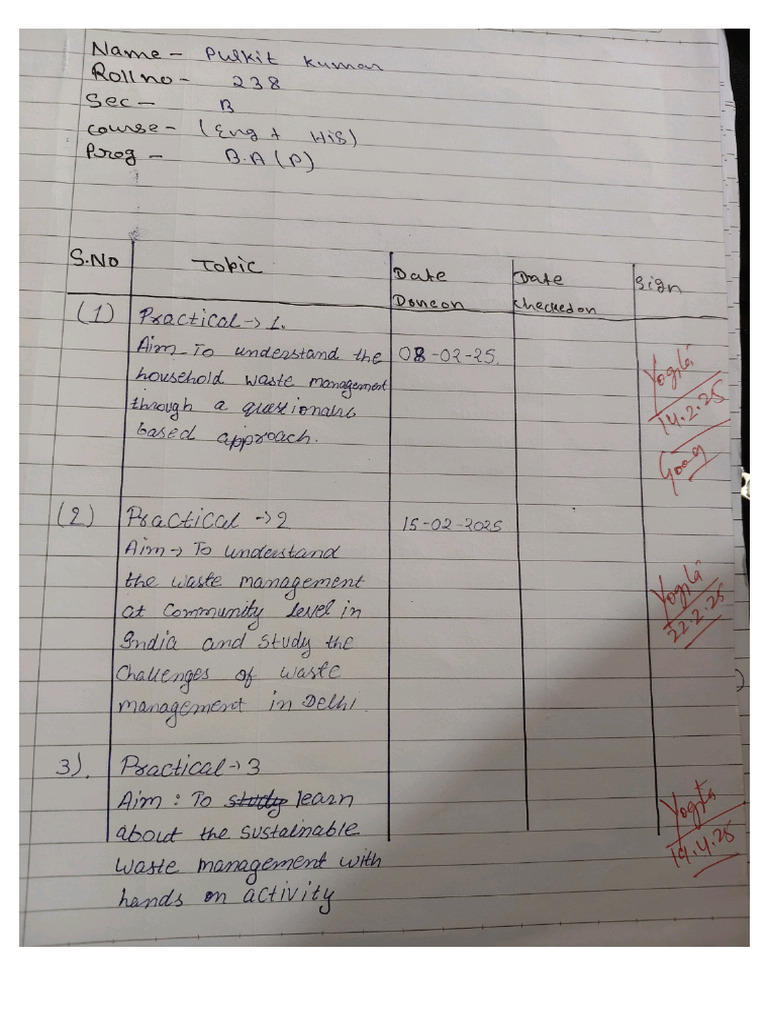 Name - Pulkit Kumar
Roll no - 238
Sec - B
Course - (Eng + His)
Prog - B.A (P)
S.No Topic Date Done on Date Checked on Sign
(1) Practical → 1.
Aim - To understand the 08-02-25.
household waste management
through a questionaire
based approach.
Yogita
14.2.25
Good
(2) Practical → 2 15-02-2025
Aim → To understand
the waste management
at Community level in
India and study the
Challenges of waste
management in Delhi.
Yogita
22.2.25
3). Practical → 3
Aim : To study learn
about the sustainable
waste management with
hands on activity
Yogita
19.4.25